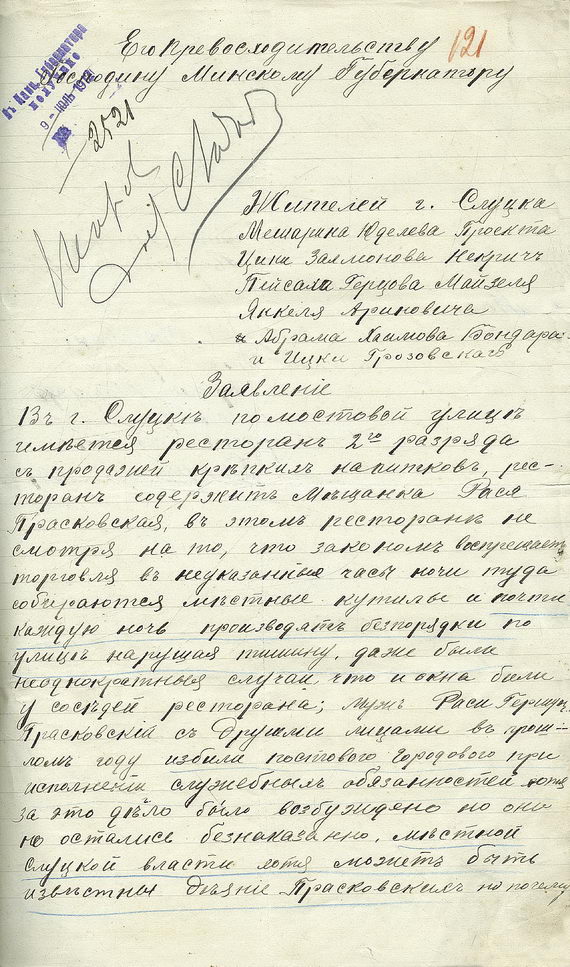 Его Превосходительству
Господину Минскому Губернатору
121
Въ Канц. Губернатора
получено
9 - ІЮНЬ 19
№
2521
Жителей г. Слуцка
Мешарина Юделева Проекта
Цини Залмонова Некричъ
Пейсаха Герцова Майзеля
Янкеля Ариновича
и Абрама Хаимова Бондара
и Ицки Грозовскаго
Заявленіе
Въ г. Слуцкѣ по мостовой улицѣ
имѣется ресторанъ 2го разряда
съ продажей крѣпкихъ напитковъ, рес-
торанъ содержитъ Мѣщанка Рася
Прасковская, въ этомъ ресторанѣ не
смотря на то, что закономъ воспрещаетъ
торговля въ неуказанные часы ночи туда
собираются мѣстные кутилы и почти
каждую ночь производятъ безпорядки по
улицѣ нарушая тишину, даже были
неоднократныя случаи что и окна били
у сосѣдей ресторана; мужъ Раси Герцъ
Прасковскій съ другими лицами въ прош-
ломъ году избили постового Городового при
исполненіи служебныхъ обязанностей хотя
за это дѣло было возбуждено но они
но остались безнаказанно, мѣстной
слуцкой власти хотя можетъ быть
извѣстны дѣяніе Прасковскихъ но почему